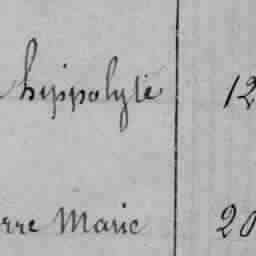 hippolyte 12
rre Marie 20